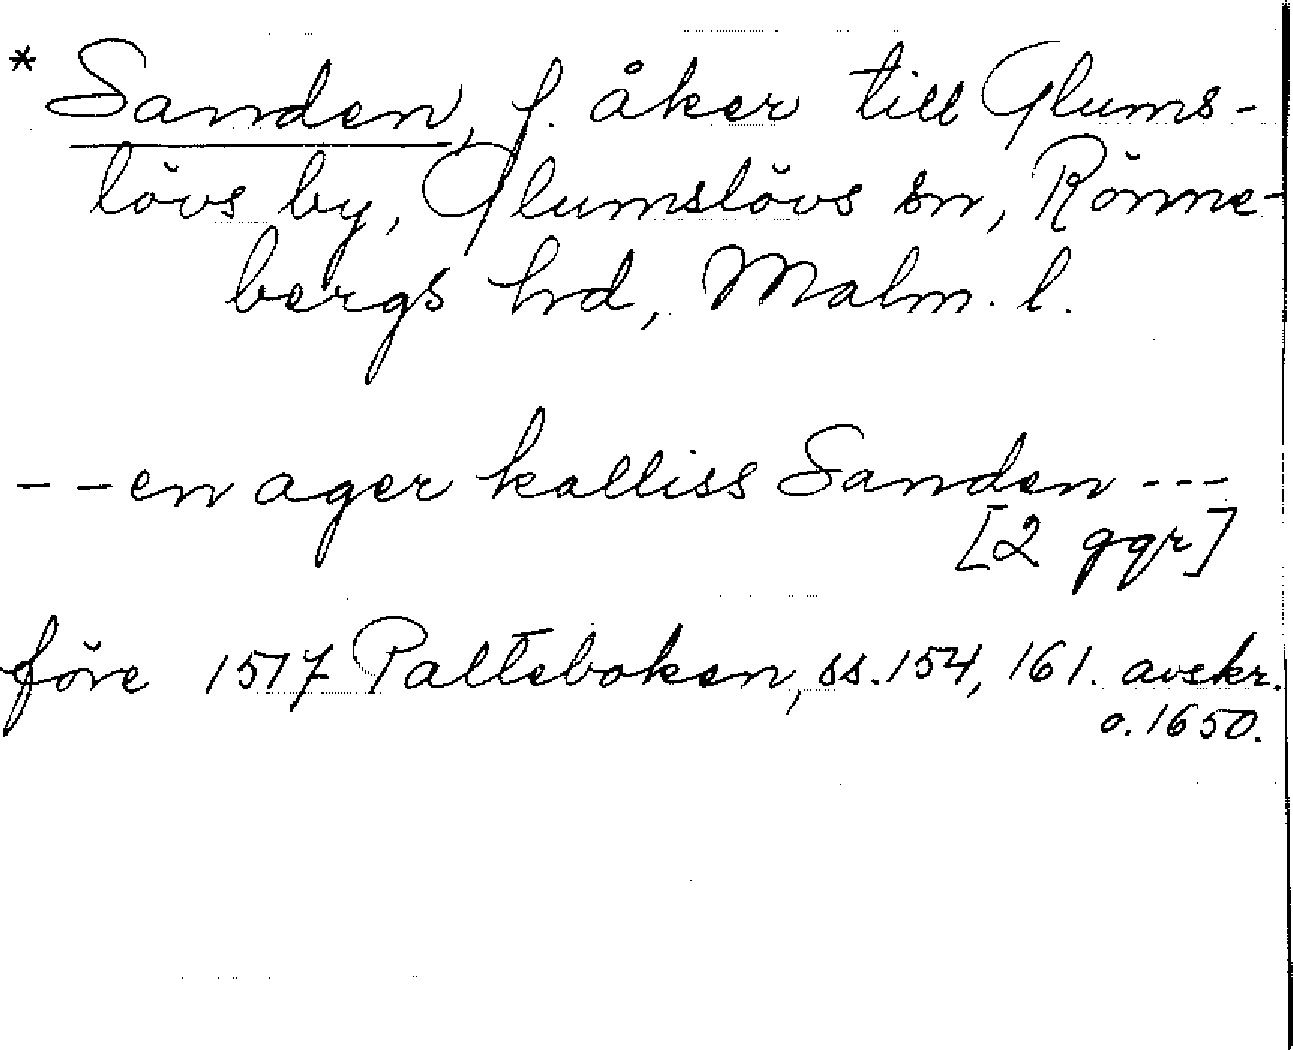 * Sanden, f. åker till Glums-
lövs by, Glumslövs sn, Rönne-
bergs hd, Malm. l.
- - en ager kalliss Sanden ---
[2 ggr]
före 1517 Palteboken, ss. 154, 161. avskr.
o. 1650.